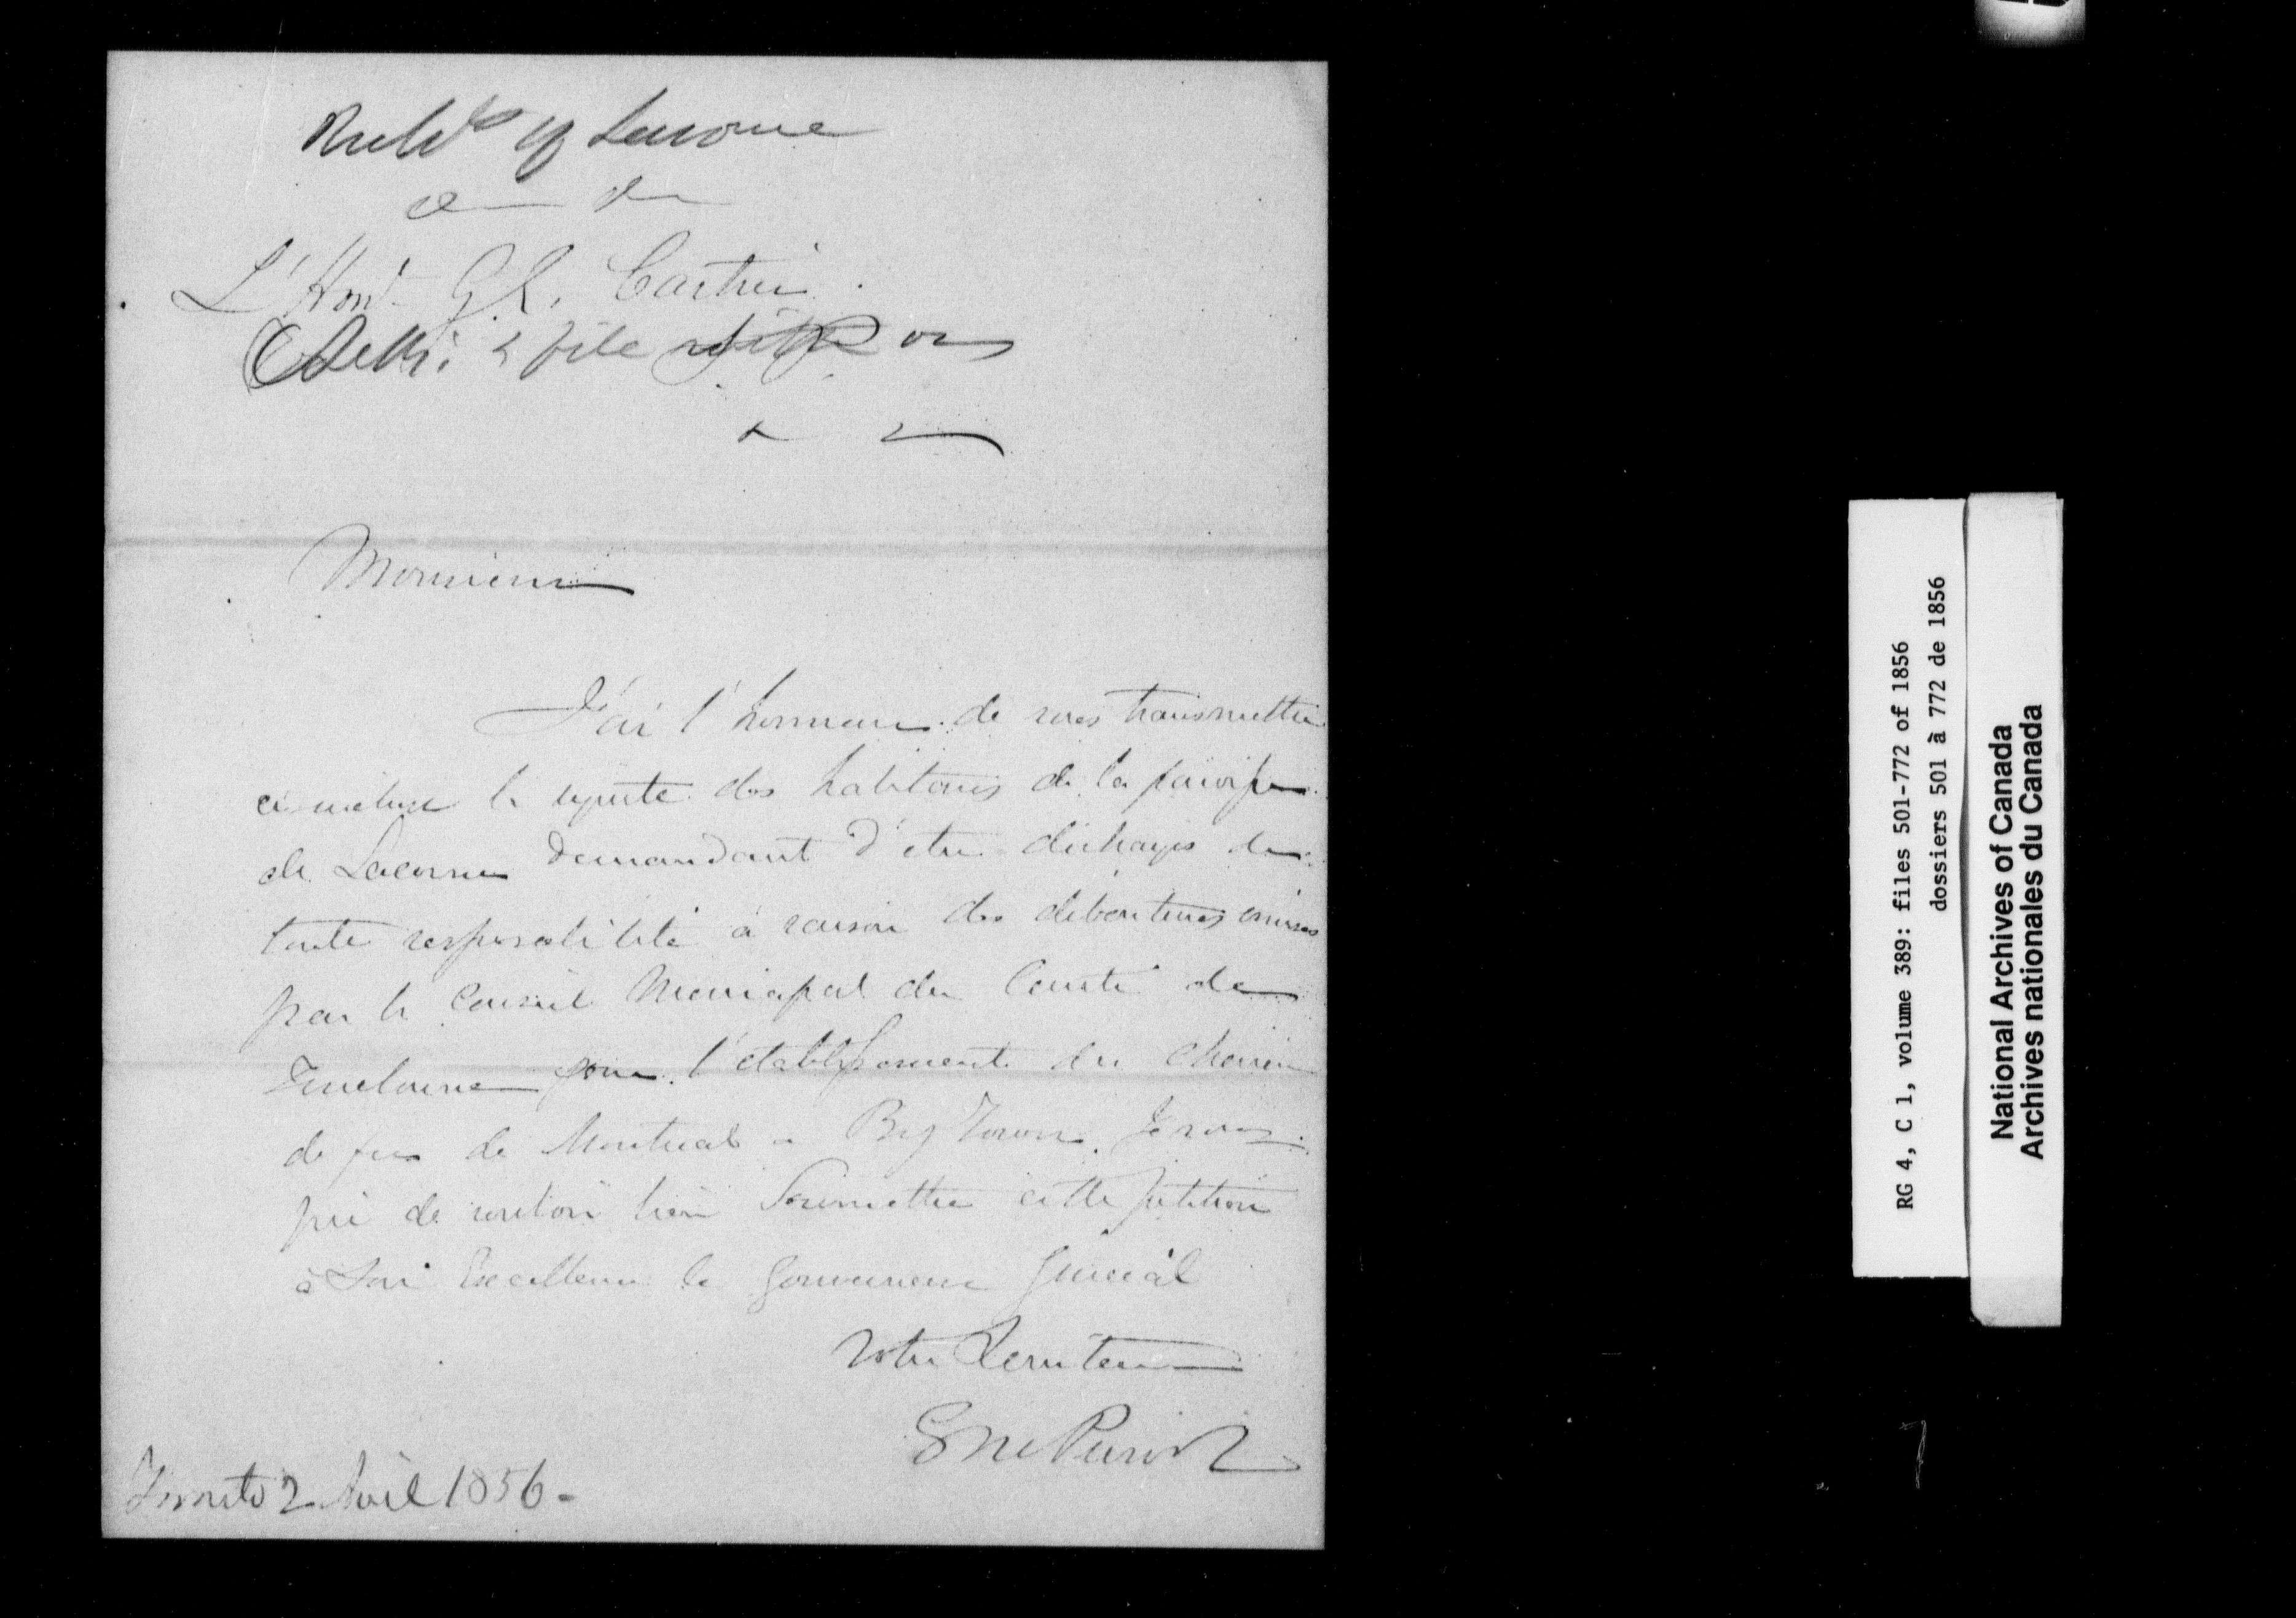 of Lacorne
L'Hon. G. E. Cartier
& file
Monsieur
J'ai l'honneur de vous transmettre
ci incluse la requête des habitans de la paroisse
de Lacorne demandant d'être déchargés de
toute responsabilité à raison des débentures émises
par le Conseil Municipal du Comté de
Terrebonne pour l'établissement du chemin
de fer de Montreal a By Town. Je vous
prie de vouloir bien soumettre cette pétition
à Son Excellence le Gouverneur Général
Votre Serviteur
Toronto 2 Avril 1856 -
RG 4, C 1, volume 389: files 501-772 of 1856
dossiers 501 à 772 de 1856
National Archives of Canada
Archives nationales du Canada